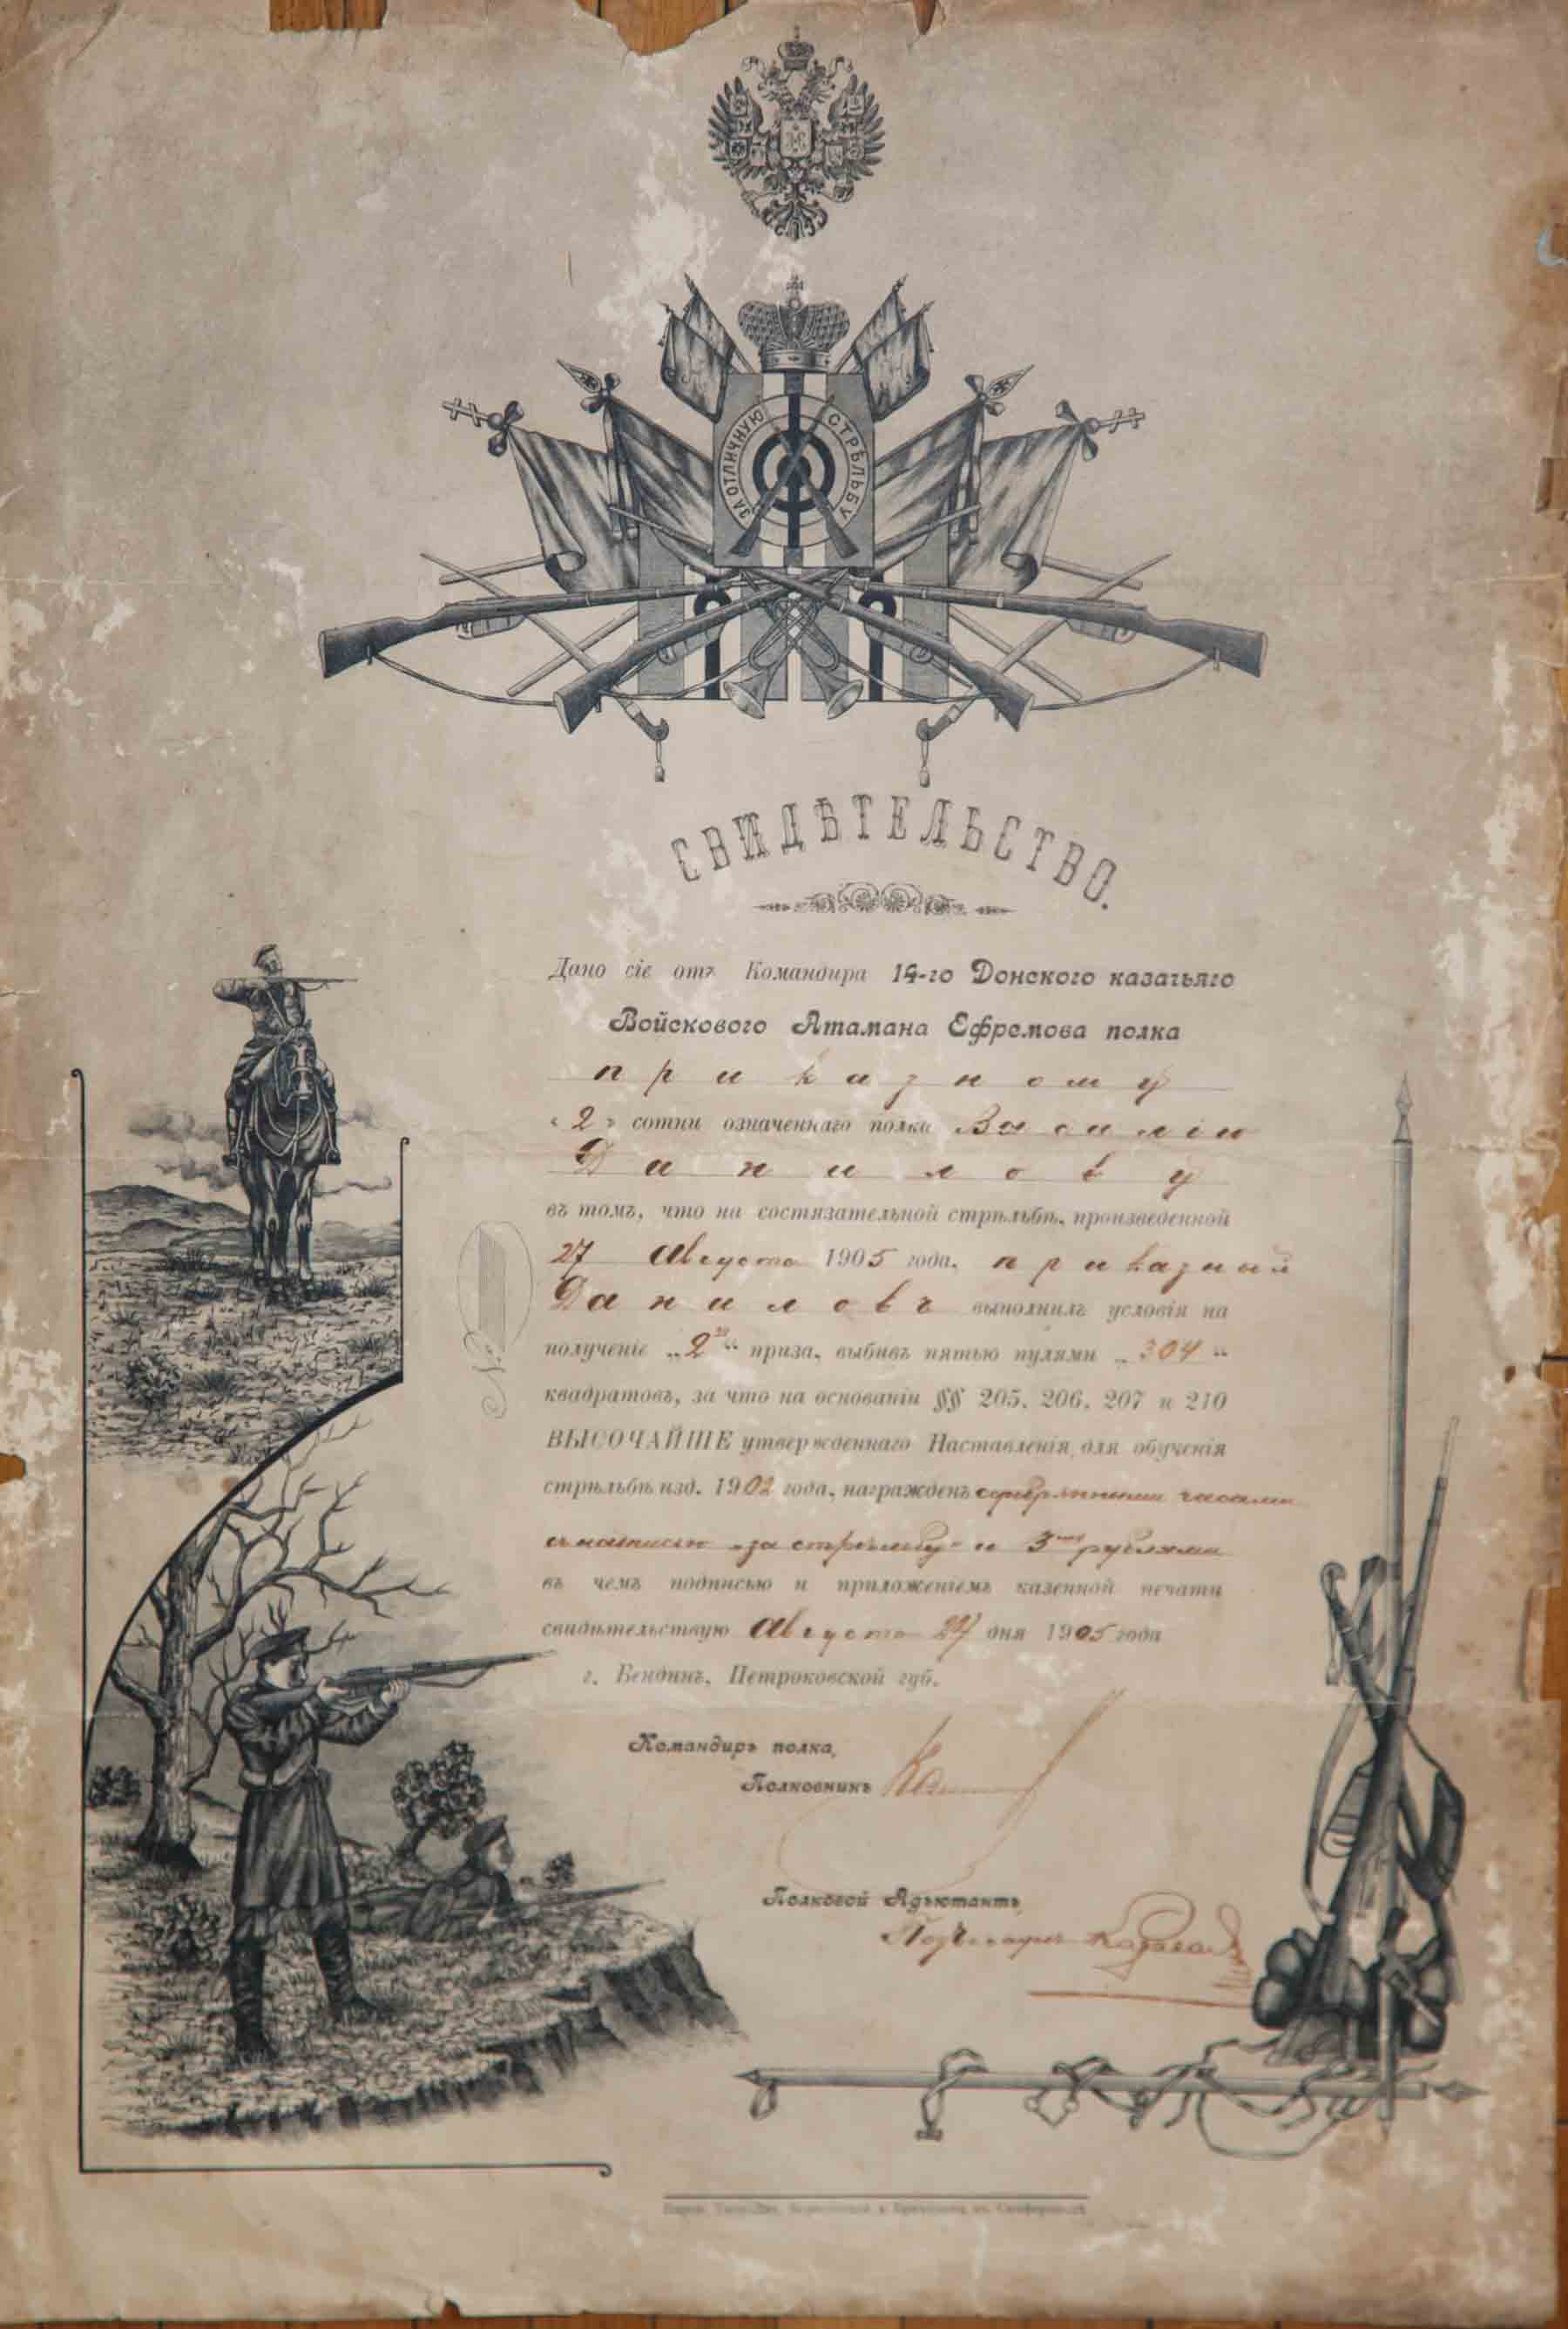 ЗА ОТЛИЧНУЮ СТРѢЛЬБУ
СВИДѢТЕЛЬСТВО.
Дано сіе отъ Командира 14-го Донского казачьяго
Войскового Атамана Ефремова полка
приказному
«2» сотни означеннаго полка Василію
Данилову
въ томъ, что на состязательной стрѣльбѣ, произведенной
27 Августа 1905 года, приказный
Даниловъ выполнилъ условія на
полученіе „2го“ приза, выбивъ пятью пулями „304“
квадратовъ, за что на основаніи §§ 205, 206, 207 и 210
ВЫСОЧАЙШЕ утвержденнаго Наставленія для обученія
стрѣльбѣ изд. 1902 года, награжденъ серебряными часами
съ надписью „за стрѣльбу“ и 3мя рублями
въ чемъ подписью и приложеніемъ казенной печати
свидѣтельствую Августа 27 дня 1905 года
г. Бендинъ, Петроковской губ.
Командиръ полка,
Полковникъ
Полковой Адъютантъ,
Подъесаулъ